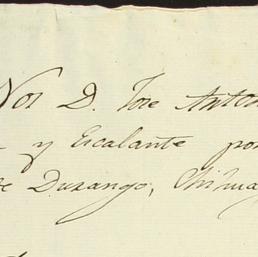 Nos D. Jose Anto
y Escalante po
Durango, Chihua